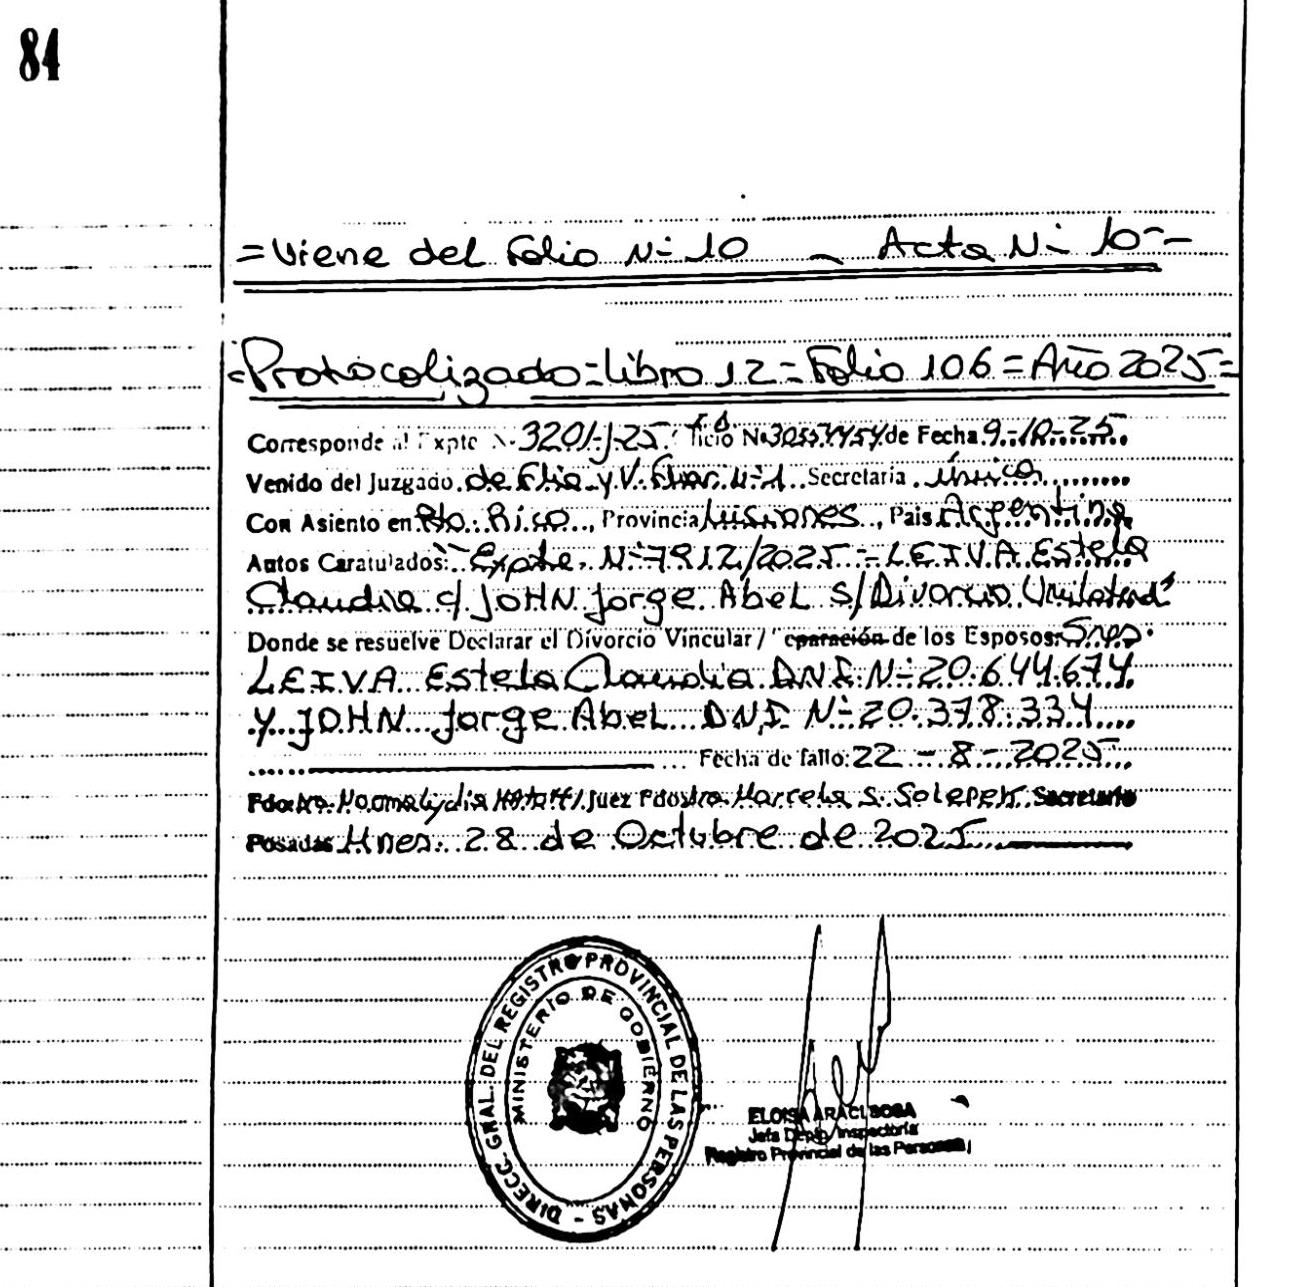 84
= Viene del Folio Nº 10 - Acta Nº 10 - -
= Protocolizado = Libro 12 = Folio 106 = Año 2025 =
Corresponde al Expte N. 3201-J-25 ficio Nº de Fecha 9-10-25
Venido del Juzgado de Flia y V. Fliar. Nº 1 Secretaria Única
Con Asiento en Pto. Rico, Provincia Misiones, Pais Argentina
Autos Caratulados: "Expte. Nº 7912/2025 - LEIVA Estela
Claudia c/ JOHN Jorge Abel s/ Divorcio Unilateral"
Donde se resuelve Declarar el Divorcio Vincular / eparación de los Esposos: Sres.
LEIVA Estela Claudia DNI Nº 20.644.674
y JOHN Jorge Abel DNI Nº 20.378.334
Fecha de fallo: 22-8-2025
Fdo: Juez Fdo: Dra. Marcela S. Secretario
Posadas Mnes. 28 de Octubre de 2025
DIRECC. GRAL. DEL REGISTRO PROVINCIAL DE LAS PERSONAS -
MINISTERIO DE GOBIERNO
ELOISA ARACI SOSA
Jefa Dpto. Inspectoría
Registro Provincial de las Personas